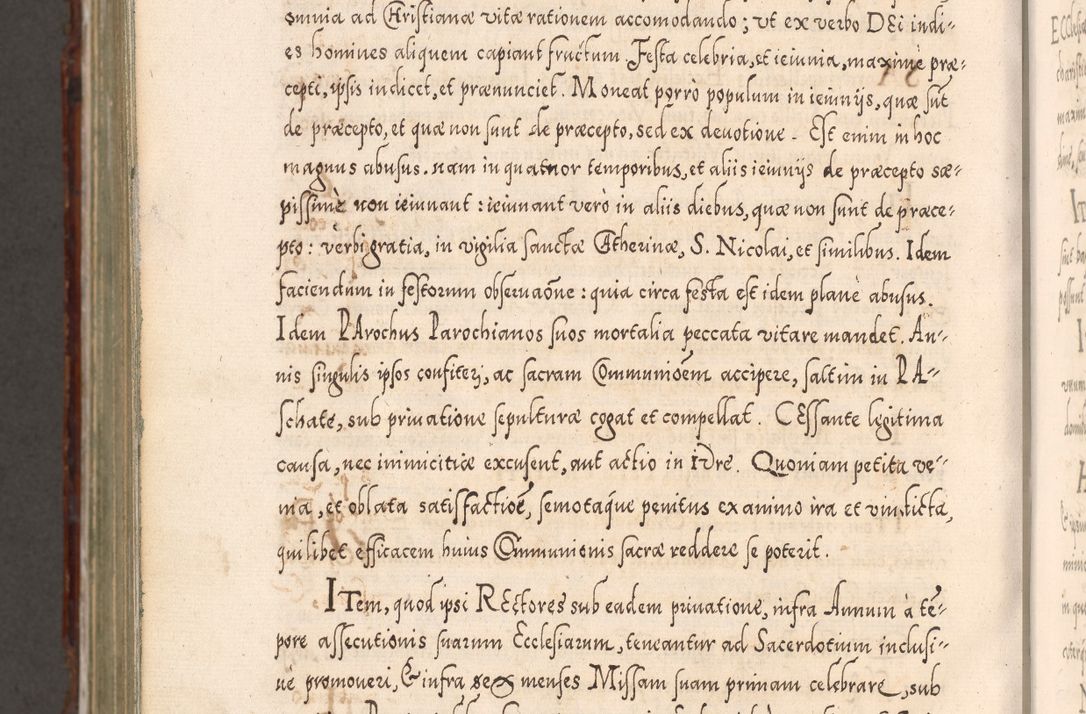 omnia ad Christianæ vitæ rationem accomodando; vt ex verbo DEi indi=
es homines aliquem capiant fructum. Festa celebria, et ieiunia, maximè præ=
cepti, ipsis indicet, et prænunciet. Moneat porrò populum in ieiunijs, quæ sūt
de præcepto, et quæ non sunt de præcepto, sed ex deuotione. Est enim in hoc
magnus abusus. nam in quatuor temporibus, et aliis ieiunijs de præcepto sæ=
pissimè non ieiunant: ieiunant verò in aliis diebus, quæ non sunt de præce=
pto: verbi gratia, in vigilia sanctæ Catherinæ, S. Nicolai, et similibus. Idem
faciendum in festorum obseruaōne: quia circa festa est idem planè abusus.
Idem PArochus Parochianos suos mortalia peccata vitare mandet. An=
nis singulis ipsos confiteri, ac sacram Communiōem accipere, saltim in PA=
schate, sub priuatione sepulturæ cogat et compellat. CEssante legitima
causa, nec inimicitiæ excusent, aut actio in iure. Quoniam petita ve=
nia, et oblata satisfactiōe, semotaque penitus ex animo ira et vindicta,
quilibet efficacem huius Communionis sacræ reddere se poterit.
ITem, quod ipsi REctores sub eadem priuatione, infra Annum à tē=
pore assecutionis suarum Ecclesiarum, teneantur ad Sacerdotium inclusi=
uè promoueri, & infra sex menses Missam suam primam celebrare, sub